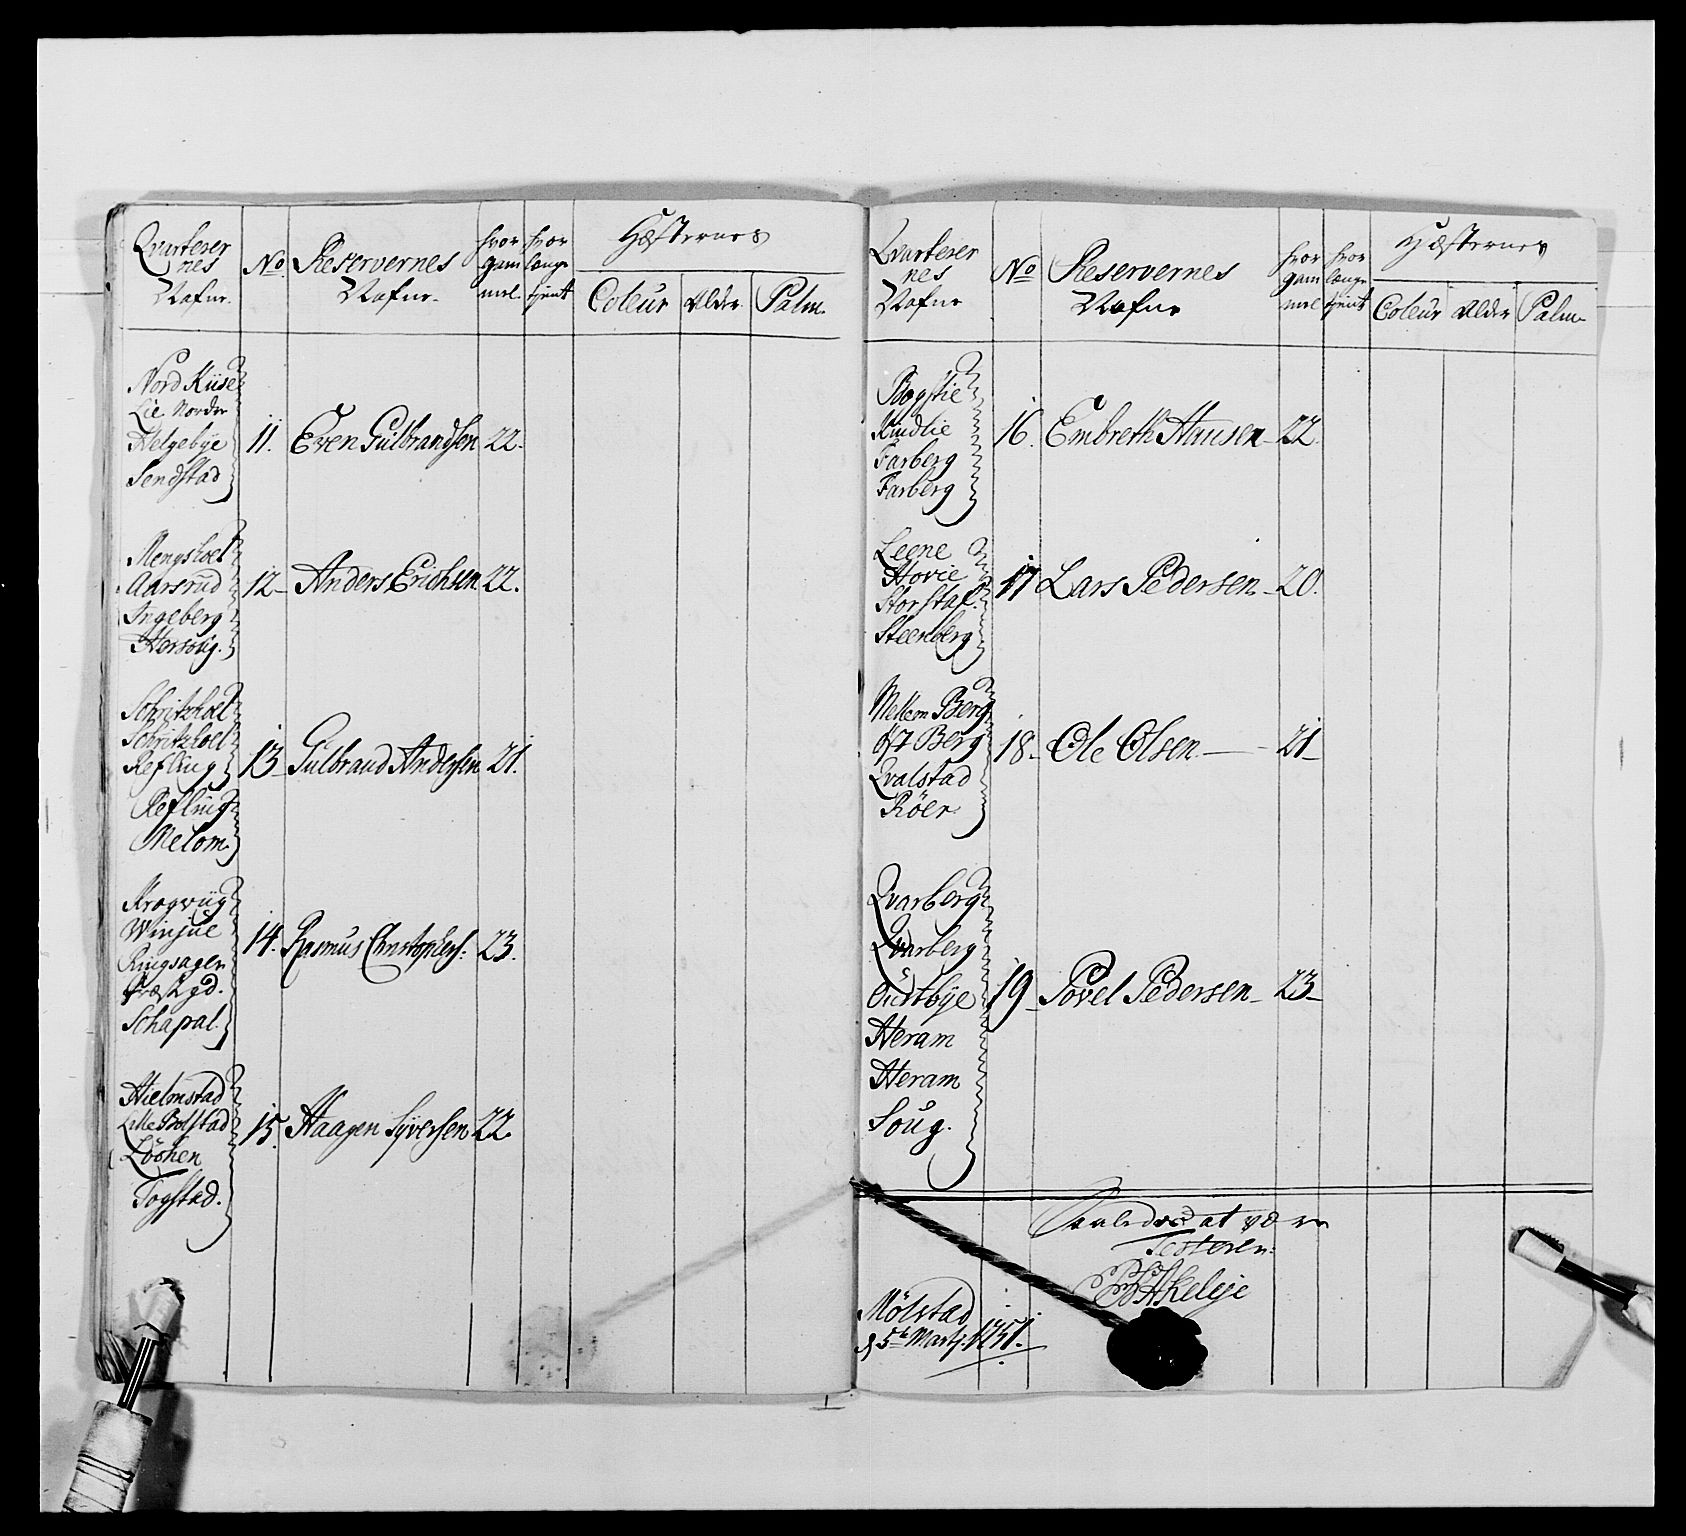 Qvarterer
nes
Nafne.
No
Reservernes
Nafne.
hvor
gam
mel
hvor
længe
tient
Hæsternes
Coleur
Alder
Palm.
Nord Kiise
Lie Nordre
Helgebye
Sendstad
11. Even Gulbrandsen 22.
Mengshoel
Aarsrud
Ingeberg
Hersoug.
12 Anders Erichsen 22.
Schritzhoel
Schritzhoel
Refling
Refling
Melom.
13 Gulbrand Andersen 21.
Krogviig
Winjue
Ringsager
Præstgd.
Schapal
14. Rasmus Christophers: 23.
Hielmstad
Lille Bolstad
Löchen
Togstad.
15. Haagen Syversen 22.
Qvarterer
nes
Nafne
No
Reservernes
Nafne
hvor
gam
mel
hvor
længe
tient
Hæsternes
Coleur
Alder
Palm
Bogstie
Kindlie
Farberg
Farberg
16. Embreth Hansen 22.
Leene
Hovie
Storstad
Steenberg
17 Lars Pedersen 20.
Mellem Berg
Öst Berg
Qvalstad
Röer.
18 Ole Olsen 21
Qvarberg
Qvarberg
Oustbye
Heram
Heram
Soug.
19 Povel Pedersen 23
Saaledes at være
Testerer.
Akeleye
Mölstad
d 5te Martj. 1751.